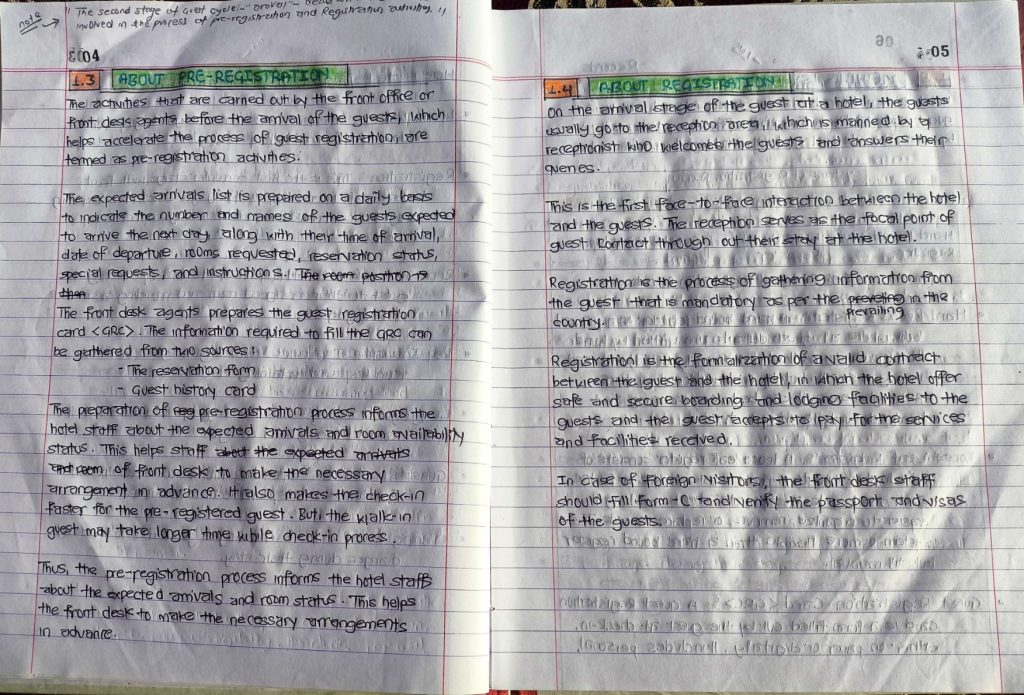 note
"The second stage of guest cycle - "arrival" -
involved in the process of pre-registration and Registration activities."
04
1.3 ABOUT PRE-REGISTRATION
The activities that are carried out by the front office or
front desk agents before the arrival of the guests, which
helps accelerate the process of guest registration, are
termed as pre-registration activities.
The expected arrivals list is prepared on a daily basis
to indicate the number and names of the guests expected
to arrive the next day along with their time of arrival,
date of departure, rooms requested, reservation status,
special requests, and instructions. The room position is
then
The front desk agents prepares the guest registration
card <GRC>. The information required to fill the GRC can
be gathered from two sources:
- The reservation form
- Guest history card
The preparation of reg pre-registration process informs the
hotel staff about the expected arrivals and room availability
status. This helps staff about the expected arrivals
and room of front desk to make the necessary
arrangement in advance. It also makes the check-in
faster for the pre-registered guest. But, the walk-in
guest may take longer time while check-in process.
Thus, the pre-registration process informs the hotel staffs
about the expected arrivals and room status. This helps
the front desk to make the necessary arrangements
in advance.
05
1.4 ABOUT REGISTRATION
On the arrival stage of the guest at a hotel, the guests
usually go to the reception area, which is manned by a
receptionist who welcomes the guests and answers their
queries.
This is the first face-to-face interaction between the hotel
and the guests. The reception serves as the focal point of
guest contact through out their stay at the hotel.
Registration is the process of gathering information from
the guest that is mandatory as per the preveling in the
prevailing
country.
Registration is the formalization of a valid contract
between the guest and the hotel, in which the hotel offer
safe and secure boarding and lodging facilities to the
guests and the guest accepts to pay for the services
and facilities received.
In case of foreign visitors, the front desk staff
should fill form-C and verify the passport and visas
of the guests.